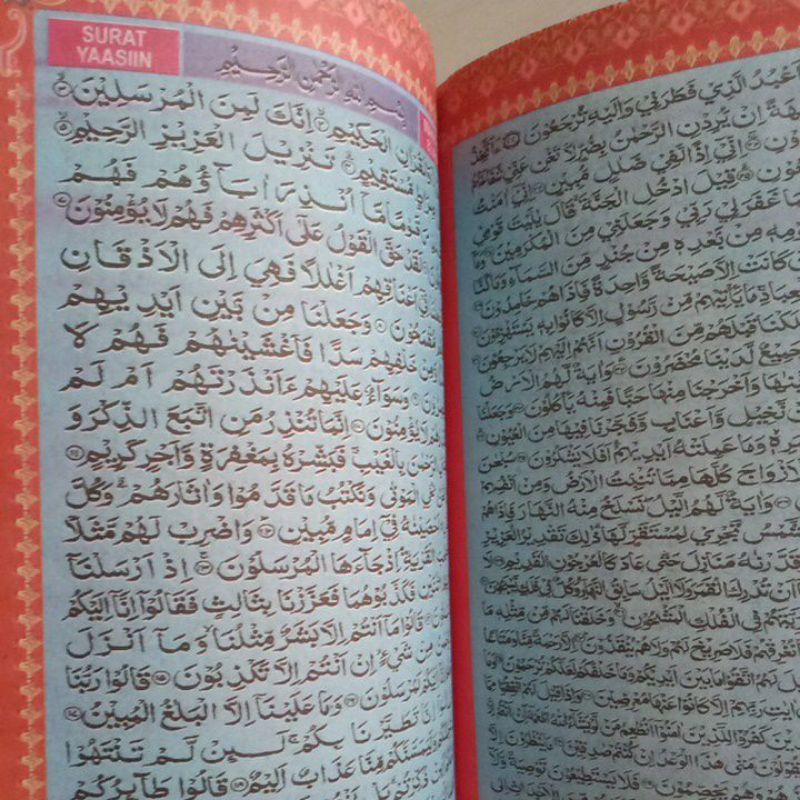 SURAT
YAASIIN
بِسْمِ اللهِ الرَّحْمٰنِ الرَّحِيْمِ
الْحَكِيْمِ اِنَّكَ لَمِنَ الْمُرْسَلِيْنَ
مُسْتَقِيْمٍ تَنْزِيْلَ الْعَزِيْزِ الرَّحِيْمِ
قَوْمًا مَّا اُنْذِرَ اٰبَاؤُهُمْ فَهُمْ
لَقَدْ حَقَّ الْقَوْلُ عَلٰى اَكْثَرِهِمْ فَهُمْ لَا يُؤْمِنُوْنَ
فِيْ اَعْنَاقِهِمْ اَغْلٰلًا فَهِيَ اِلَى الْاَذْقَانِ
وَجَعَلْنَا مِنْ بَيْنِ اَيْدِيْهِمْ
مِنْ خَلْفِهِمْ سَدًّا فَاَغْشَيْنٰهُمْ فَهُمْ لَا
وَسَوَاءٌ عَلَيْهِمْ ءَاَنْذَرْتَهُمْ اَمْ لَمْ
لَا يُؤْمِنُوْنَ اِنَّمَا تُنْذِرُ مَنِ اتَّبَعَ الذِّكْرَ وَ
بِالْغَيْبِ فَبَشِّرْهُ بِمَغْفِرَةٍ وَّاَجْرٍ كَرِيْمٍ
الْمَوْتٰى وَنَكْتُبُ مَا قَدَّمُوْا وَاٰثَارَهُمْ وَكُلَّ
فِيْ اِمَامٍ مُّبِيْنٍ وَاضْرِبْ لَهُمْ مَّثَلًا
الْقَرْيَةِ اِذْ جَاءَهَا الْمُرْسَلُوْنَ اِذْ اَرْسَلْنَا
فَكَذَّبُوْهُمَا فَعَزَّزْنَا بِثَالِثٍ فَقَالُوْا اِنَّا اِلَيْكُمْ
قَالُوْا مَا اَنْتُمْ اِلَّا بَشَرٌ مِّثْلُنَا وَمَا اَنْزَلَ
مِنْ شَيْءٍ اِنْ اَنْتُمْ اِلَّا تَكْذِبُوْنَ قَالُوْا رَبُّنَا
لَمُرْسَلُوْنَ وَمَا عَلَيْنَا اِلَّا الْبَلٰغُ الْمُبِيْنُ
اِنَّا تَطَيَّرْنَا بِكُمْ لَىِٕنْ لَّمْ تَنْتَهُوْا
مِّنَّا عَذَابٌ اَلِيْمٌ قَالُوْا طَائِرُكُمْ
اَعْبُدُ الَّذِيْ فَطَرَنِيْ وَاِلَيْهِ تُرْجَعُوْنَ ءَاَتَّخِذُ
اِنْ يُّرِدْنِ الرَّحْمٰنُ بِضُرٍّ لَّا تُغْنِ عَنِّيْ شَفَاعَتُهُمْ
اِنِّيْ اِذًا لَّفِيْ ضَلٰلٍ مُّبِيْنٍ اِنِّيْ اٰمَنْتُ
قِيْلَ ادْخُلِ الْجَنَّةَ قَالَ يٰلَيْتَ قَوْمِيْ
غَفَرَ لِيْ رَبِّيْ وَجَعَلَنِيْ مِنَ الْمُكْرَمِيْنَ وَمَا
مِنْ بَعْدِهٖ مِنْ جُنْدٍ مِّنَ السَّمَاءِ وَمَا كُنَّا
كَانَتْ اِلَّا صَيْحَةً وَّاحِدَةً فَاِذَا هُمْ خٰمِدُوْنَ
مَا يَأْتِيْهِمْ مِّنْ رَّسُوْلٍ اِلَّا كَانُوْا بِهٖ يَسْتَهْزِءُوْنَ
قَبْلَهُمْ مِّنَ الْقُرُوْنِ اَنَّهُمْ اِلَيْهِمْ لَا يَرْجِعُوْنَ
جَمِيْعٌ لَّدَيْنَا مُحْضَرُوْنَ وَاٰيَةٌ لَّهُمُ الْاَرْضُ
وَاَخْرَجْنَا مِنْهَا حَبًّا فَمِنْهُ يَأْكُلُوْنَ وَجَعَلْنَا
نَّخِيْلٍ وَّاَعْنَابٍ وَّفَجَّرْنَا فِيْهَا مِنَ الْعُيُوْنِ
وَمَا عَمِلَتْهُ اَيْدِيْهِمْ اَفَلَا يَشْكُرُوْنَ سُبْحٰنَ
الْاَزْوَاجَ كُلَّهَا مِمَّا تُنْبِتُ الْاَرْضُ وَمِنْ اَنْفُسِهِمْ
وَاٰيَةٌ لَّهُمُ الَّيْلُ نَسْلَخُ مِنْهُ النَّهَارَ فَاِذَا هُمْ
تَجْرِيْ لِمُسْتَقَرٍّ لَّهَا ذٰلِكَ تَقْدِيْرُ الْعَزِيْزِ
قَدَّرْنٰهُ مَنَازِلَ حَتّٰى عَادَ كَالْعُرْجُوْنِ الْقَدِيْمِ
اَنْ تُدْرِكَ الْقَمَرَ وَلَا الَّيْلُ سَابِقُ النَّهَارِ وَكُلٌّ فِيْ فَلَكٍ يَّسْبَحُوْنَ
فِي الْفُلْكِ الْمَشْحُوْنِ وَخَلَقْنَا لَهُمْ مِّنْ مِّثْلِهٖ مَا
نُغْرِقْهُمْ فَلَا صَرِيْخَ لَهُمْ وَلَا هُمْ يُنْقَذُوْنَ اِلَّا رَحْمَةً مِّنَّا وَمَتَاعًا
لَهُمُ اتَّقُوْا مَا بَيْنَ اَيْدِيْكُمْ وَمَا خَلْفَكُمْ لَعَلَّكُمْ تُرْحَمُوْنَ وَمَا
رَبِّهِمْ اِلَّا كَانُوْا عَنْهَا مُعْرِضِيْنَ وَاِذَا قِيْلَ لَهُمْ اَنْفِقُوْا مِمَّا
كَفَرُوْا لِلَّذِيْنَ اٰمَنُوْا اَنُطْعِمُ مَنْ لَّوْ يَشَاءُ اللهُ
مَتٰى هٰذَا الْوَعْدُ اِنْ كُنْتُمْ صٰدِقِيْنَ مَا يَنْظُرُوْنَ اِلَّا
وَهُمْ يَخِصِّمُوْنَ فَلَا يَسْتَطِيْعُوْنَ تَوْصِيَةً وَّلَا